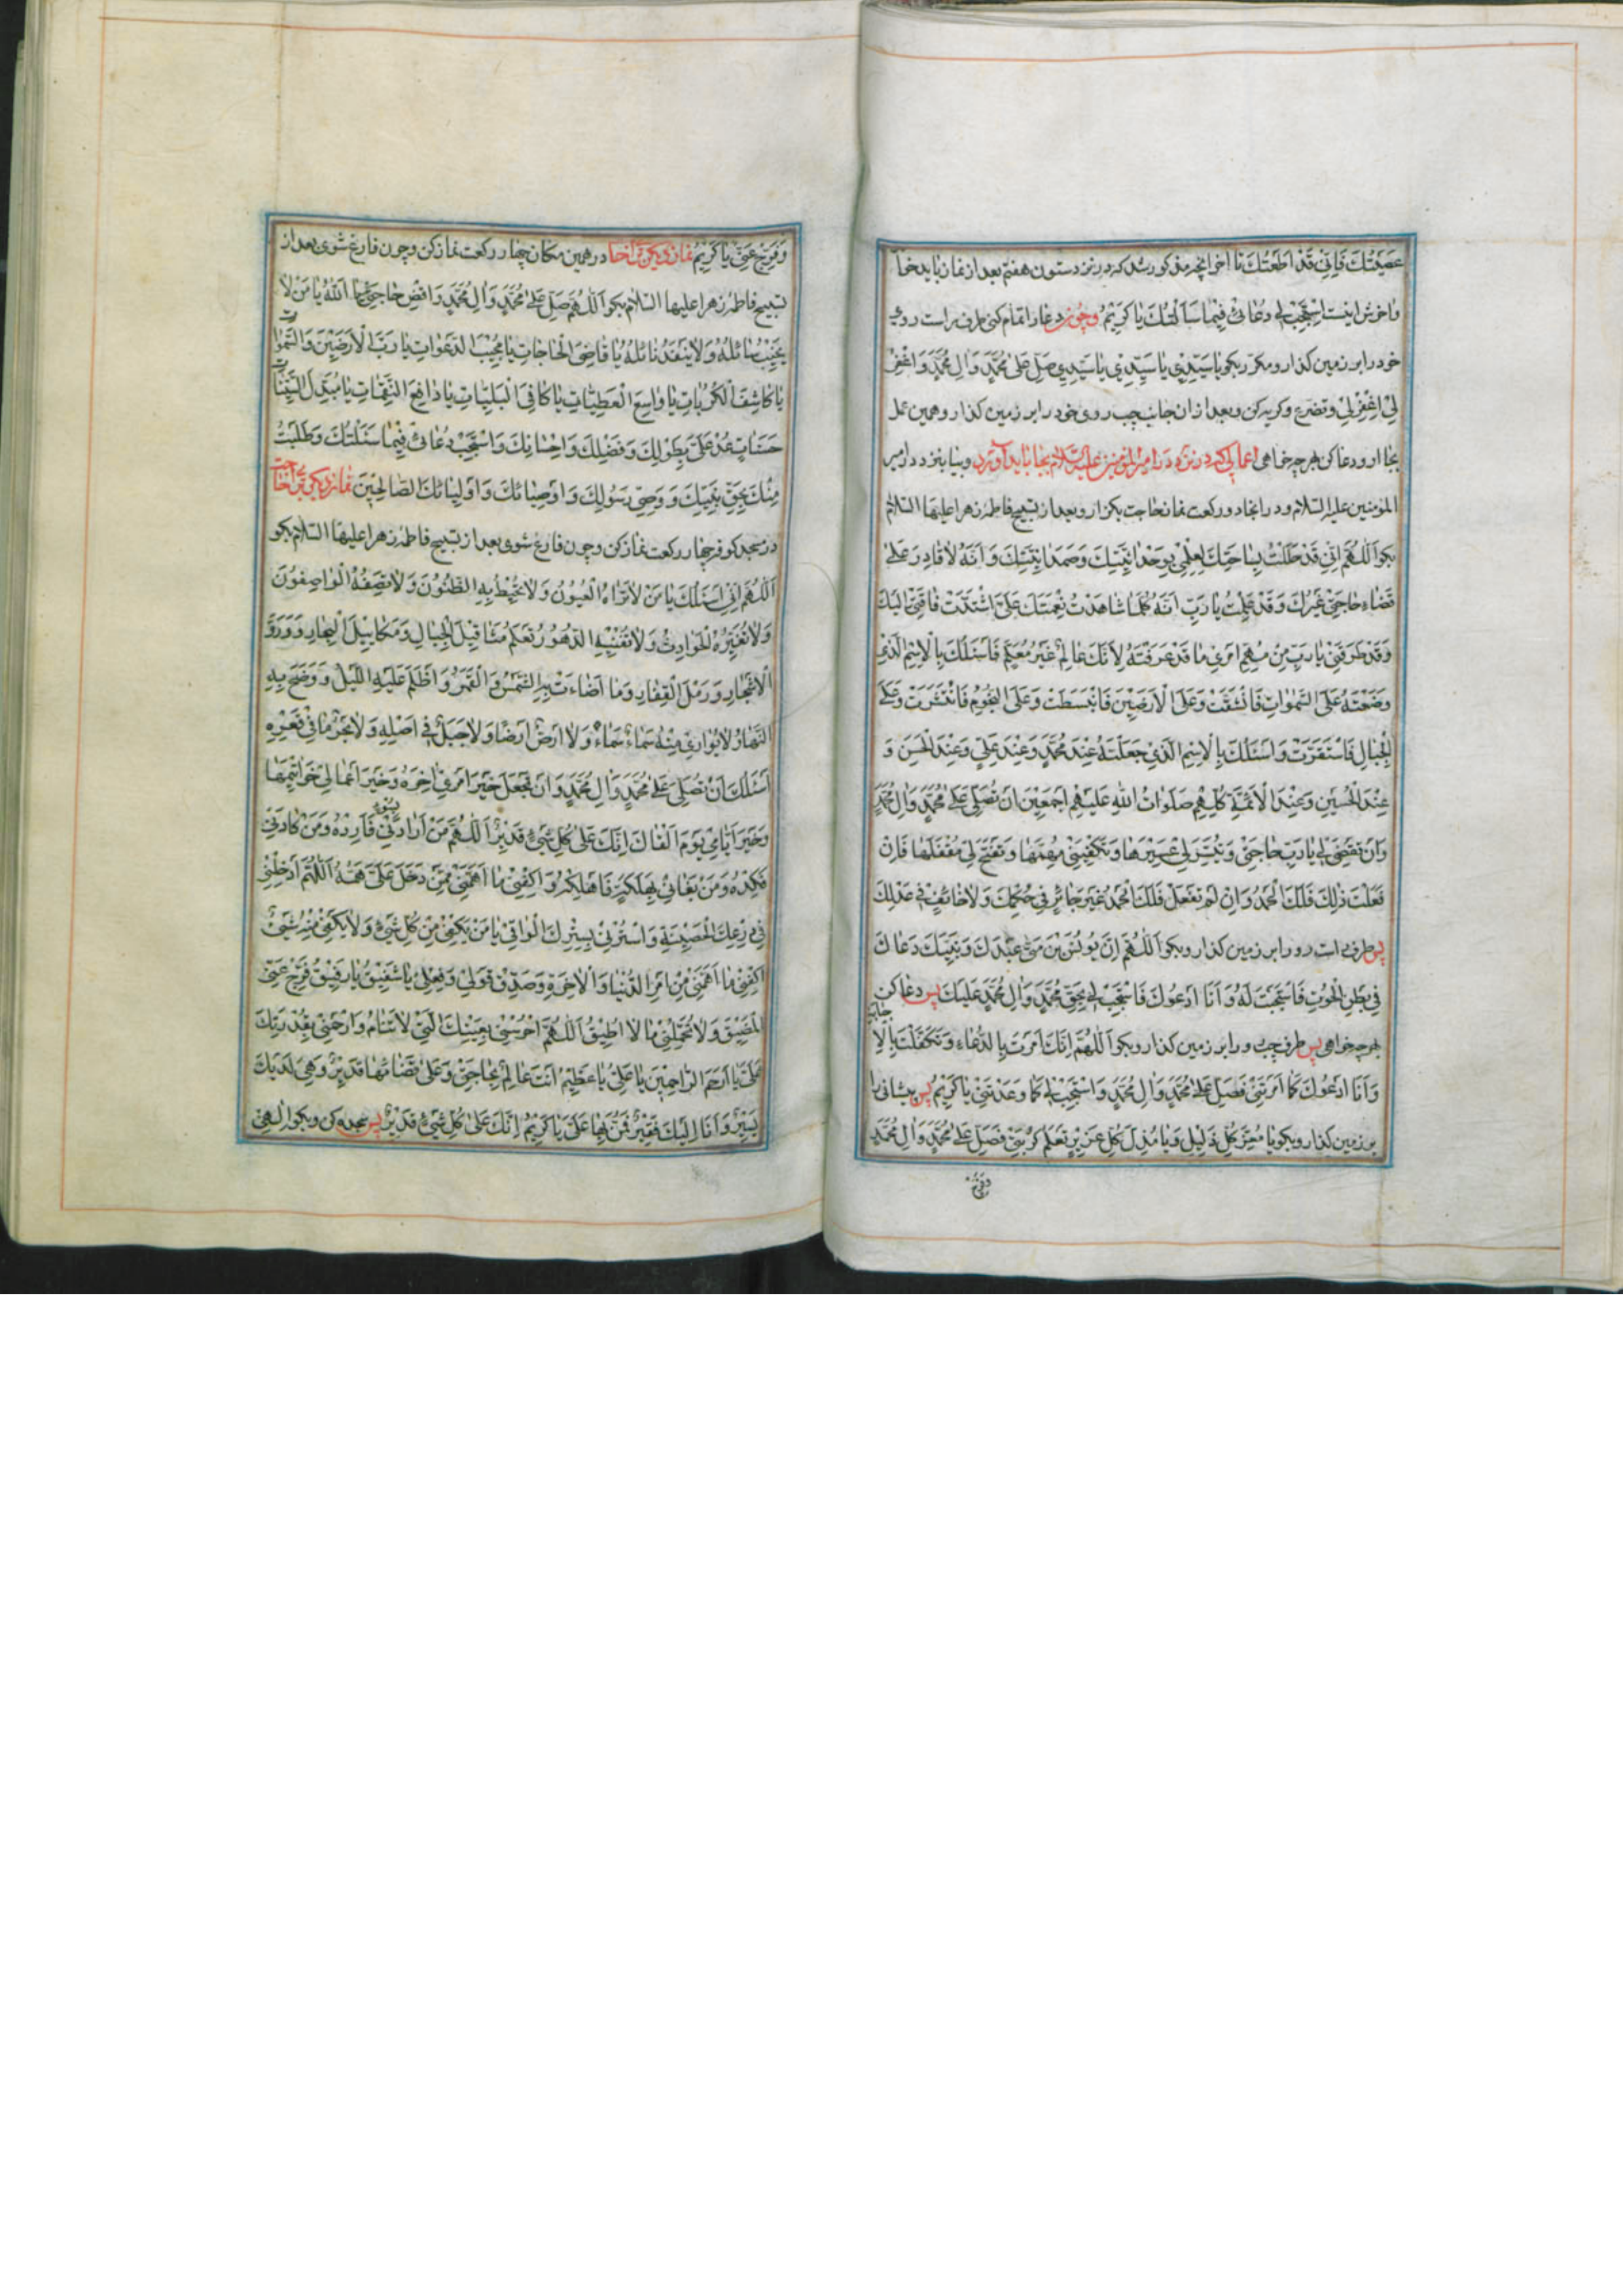 عَصَيْتُكَ فَاِنّي قَدْ اَطَعْتُكَ تا آخر انچه مذکور شد که در نزد ستون هفتم بعد از نماز باید خواند
و آخرش اینست اِسْتَجِبْ لي دُعائي فيما سَاَلْتُكَ يا كَريمُ و چون دعا را تمام کنی طرف راست روی
خود را بر زمین گذار و مکرر بگو یا سَيِّدي يا سَيِّدي يا سَيِّدي صَلِّ عَلى مُحَمَّدٍ وَ الِ مُحَمَّدٍ وَ اغْفِرْ
لي اغْفِرْ لي و تضرع و گریه کن و بعد از ان جانب چپ روی خود را بر زمین گذار و همین عمل
بجا ار و دعا کن بهر چه خواهی اعمالی که در نزد در امیر المؤمنین علیه السلام بجا باید آورد و بیا بنزد در امیر
المؤمنین علیه السلام و در انجا دو رکعت نماز حاجت بگزار و بعد از تسبیح فاطمه زهرا علیها السلام
بگو اَللّهُمَّ اِنّي قَدْ حَلَلْتُ بِساحَتِكَ لِعِلْمي بِوَحْدانِيَّتِكَ وَ صَمَدانِيَّتِكَ وَ اَنَّهُ لا قادِرَ عَلى
قَضاءِ حاجَتي غَيْرُكَ وَ قَدْ عَلِمْتُ يا رَبِّ اَنَّهُ كُلَّما شاهَدْتُ نِعْمَتَكَ عَلَيَّ اشْتَدَّتْ فاقَتي اِلَيْكَ
وَ قَدْ طَرَقَني يا رَبِّ مِنْ مُهِمِّ اَمْري ما قَدْ عَرَفْتَهُ لِاَنَّكَ عالِمٌ غَيْرُ مُعَلَّمٍ فَاَسْئَلُكَ بِالْاِسْمِ الَّذي
وَضَعْتَهُ عَلَى السَّمواتِ فَانْشَقَّتْ وَ عَلَى الْاَرَضينَ فَانْبَسَطَتْ وَ عَلَى النُّجُومِ فَانْتَشَرَتْ وَ عَلَى
الْجِبالِ فَاسْتَقَرَّتْ وَ اَسْئَلُكَ بِالْاِسْمِ الَّذي جَعَلْتَهُ عِنْدَ مُحَمَّدٍ وَ عِنْدَ عَلِيٍّ وَ عِنْدَ الْحَسَنِ وَ
عِنْدَ الْحُسَيْنِ وَ عِنْدَ الْاَئِمَّةِ كُلِّهِمْ صَلَواتُ اللهِ عَلَيْهِمْ اَجْمَعينَ اَنْ تُصَلِّيَ عَلى مُحَمَّدٍ وَ الِ مُحَمَّدٍ
وَ اَنْ تَقْضِيَ لي يا رَبِّ حاجَتي وَ تُيَسِّرَ لي عَسيرَها وَ تَكْفِيَني مُهِمَّها وَ تَفْتَحَ لي مُقْفَلَها فَاِنْ
فَعَلْتَ ذلِكَ فَلَكَ الْحَمْدُ وَ اِنْ لَمْ تَفْعَلْ فَلَكَ الْحَمْدُ غَيْرَ جائِرٍ في حُكْمِكَ وَ لا حائِفٍ في عَدْلِكَ
پس طرف راست رو را بر زمین گذار و بگو اَللّهُمَّ اِنَّ يُونُسَ بْنَ مَتّى عَبْدَكَ وَ نَبِيَّكَ دَعاكَ
في بَطْنِ الْحُوتِ فَاسْتَجَبْتَ لَهُ وَ اَنَا اَدْعُوكَ فَاسْتَجِبْ لي بِحَقِّ مُحَمَّدٍ وَ الِ مُحَمَّدٍ عَلَيْكَ پس دعا کن
بهر چه خواهی پس طرف چپ رو را بر زمین گذار و بگو اَللّهُمَّ اِنَّكَ اَمَرْتَ بِالدُّعاءِ وَ تَكَفَّلْتَ بِالْاِجابَةِ
وَ اَنَا اَدْعُوكَ كَما اَمَرْتَني فَصَلِّ عَلى مُحَمَّدٍ وَ الِ مُحَمَّدٍ وَ اسْتَجِبْ لي كَما وَعَدْتَني يا كَريمُ پس پیشانی را
بر زمین گذار و بگو یا مُعِزَّ كُلِّ ذَليلٍ وَ يا مُذِلَّ كُلِّ عَزيزٍ تَعْلَمُ كُرْبَتي فَصَلِّ عَلى مُحَمَّدٍ وَ الِ مُحَمَّدٍ
وفرج
وَ فَرِّجْ عَنّي يا كَريمُ نماز دیگر برای حاجت در همین مکان چهار رکعت نماز کن و چون فارغ شوی بعد از
تسبیح فاطمه زهرا علیها السلام بگو اَللّهُمَّ صَلِّ عَلى مُحَمَّدٍ وَ الِ مُحَمَّدٍ وَ اقْضِ حاجَتي يا اَللهُ يا مَنْ لا
يَخيبُ سائِلُهُ وَ لا يَنْفَدُ نائِلُهُ يا قاضِيَ الْحاجاتِ يا مُجيبَ الدَّعَواتِ يا رَبَّ الْاَرَضينَ وَ السَّمواتِ
يا كاشِفَ الْكُرُباتِ يا واسِعَ الْعَطِيّاتِ يا كافِيَ الْبَلِيّاتِ يا دافِعَ النَّقِماتِ يا مُبَدِّلَ السَّيِّئاتِ
حَسَناتٍ عُدْ عَلَيَّ بِطَوْلِكَ وَ فَضْلِكَ وَ اِحْسانِكَ وَ اسْتَجِبْ دُعائي فيما سَئَلْتُكَ وَ طَلَبْتُ
مِنْكَ بِحَقِّ نَبِيِّكَ وَ وَصِيِّ رَسُولِكَ وَ اَوْصِيائِكَ وَ اَوْلِيائِكَ الصّالِحينَ نماز دیگر برای حاجت
در مسجد کوفه چهار رکعت نماز کن و چون فارغ شوی بعد از تسبیح فاطمه زهرا علیها السلام بگو
اَللّهُمَّ اِنّي اَسْئَلُكَ يا مَنْ لا تَراهُ الْعُيُونُ وَ لا تُحيطُ بِهِ الظُّنُونُ وَ لا يَصِفُهُ الْواصِفُونَ
وَ لا تُغَيِّرُهُ الْحَوادِثُ وَ لا تُفْنيهِ الدُّهُورُ تَعْلَمُ مَثاقيلَ الْجِبالِ وَ مَكاييلَ الْبِحارِ وَ وَرَقَ
الْاَشْجارِ وَ رَمْلَ الْقِفارِ وَ ما اَضاءَتْ بِهِ الشَّمْسُ وَ الْقَمَرُ وَ اَظْلَمَ عَلَيْهِ اللَّيْلُ وَ وَضَحَ بِهِ
النَّهارُ لا تُواري مِنْهُ سَماءٌ سَماءً وَ لا اَرْضٌ اَرْضًا وَ لا جَبَلٌ في اَصْلِهِ وَ لا بَحْرٌ ما في قَعْرِهِ
اَسْئَلُكَ اَنْ تُصَلِّيَ عَلى مُحَمَّدٍ وَ الِ مُحَمَّدٍ وَ اَنْ تَجْعَلَ خَيْرَ اَمْري اخِرَهُ وَ خَيْرَ اَعْمالي خَواتيمَها
وَ خَيْرَ اَيّامي يَوْمَ اَلْقاكَ اِنَّكَ عَلى كُلِّ شَيْءٍ قَديرٌ اَللّهُمَّ مَنْ اَرادَني بِسُوءٍ فَاَرِدْهُ وَ مَنْ كادَني
فَكِدْهُ وَ مَنْ بَغاني بِهَلَكَةٍ فَاَهْلِكْهُ وَ اكْفِني ما اَهَمَّني مِمَّنْ دَخَلَ عَلَيَّ هَمُّهُ اَللّهُمَّ اَدْخِلْني
في دِرْعِكَ الْحَصينَةِ وَ اسْتُرْني بِسِتْرِكَ الْواقي يا مَنْ يَكْفي مِنْ كُلِّ شَيْءٍ وَ لا يَكْفي مِنْهُ شَيْءٌ
اكْفِني ما اَهَمَّني مِنْ اَمْرِ الدُّنْيا وَ الْاخِرَةِ وَ صَدِّقْ قَوْلي وَ فِعْلي يا شَفيقُ يا رَفيقُ فَرِّجْ عَنّي
الْمَضيقَ وَ لا تُحَمِّلْني ما لا اُطيقُ اَللّهُمَّ احْرُسْني بِعَيْنِكَ الَّتي لا تَنامُ وَ ارْحَمْني بِقُدْرَتِكَ
عَلَيَّ يا اَرْحَمَ الرّاحِمينَ يا عَلِيُّ يا عَظيمُ اَنْتَ عالِمٌ بِحاجَتي وَ عَلى قَضائِها قَديرٌ وَ هِيَ لَدَيْكَ
يَسيرٌ وَ اَنَا اِلَيْكَ فَقيرٌ فَمُنَّ بِها عَلَيَّ يا كَريمُ اِنَّكَ عَلى كُلِّ شَيْءٍ قَديرٌ پس سجده کن و بگو اِلهي